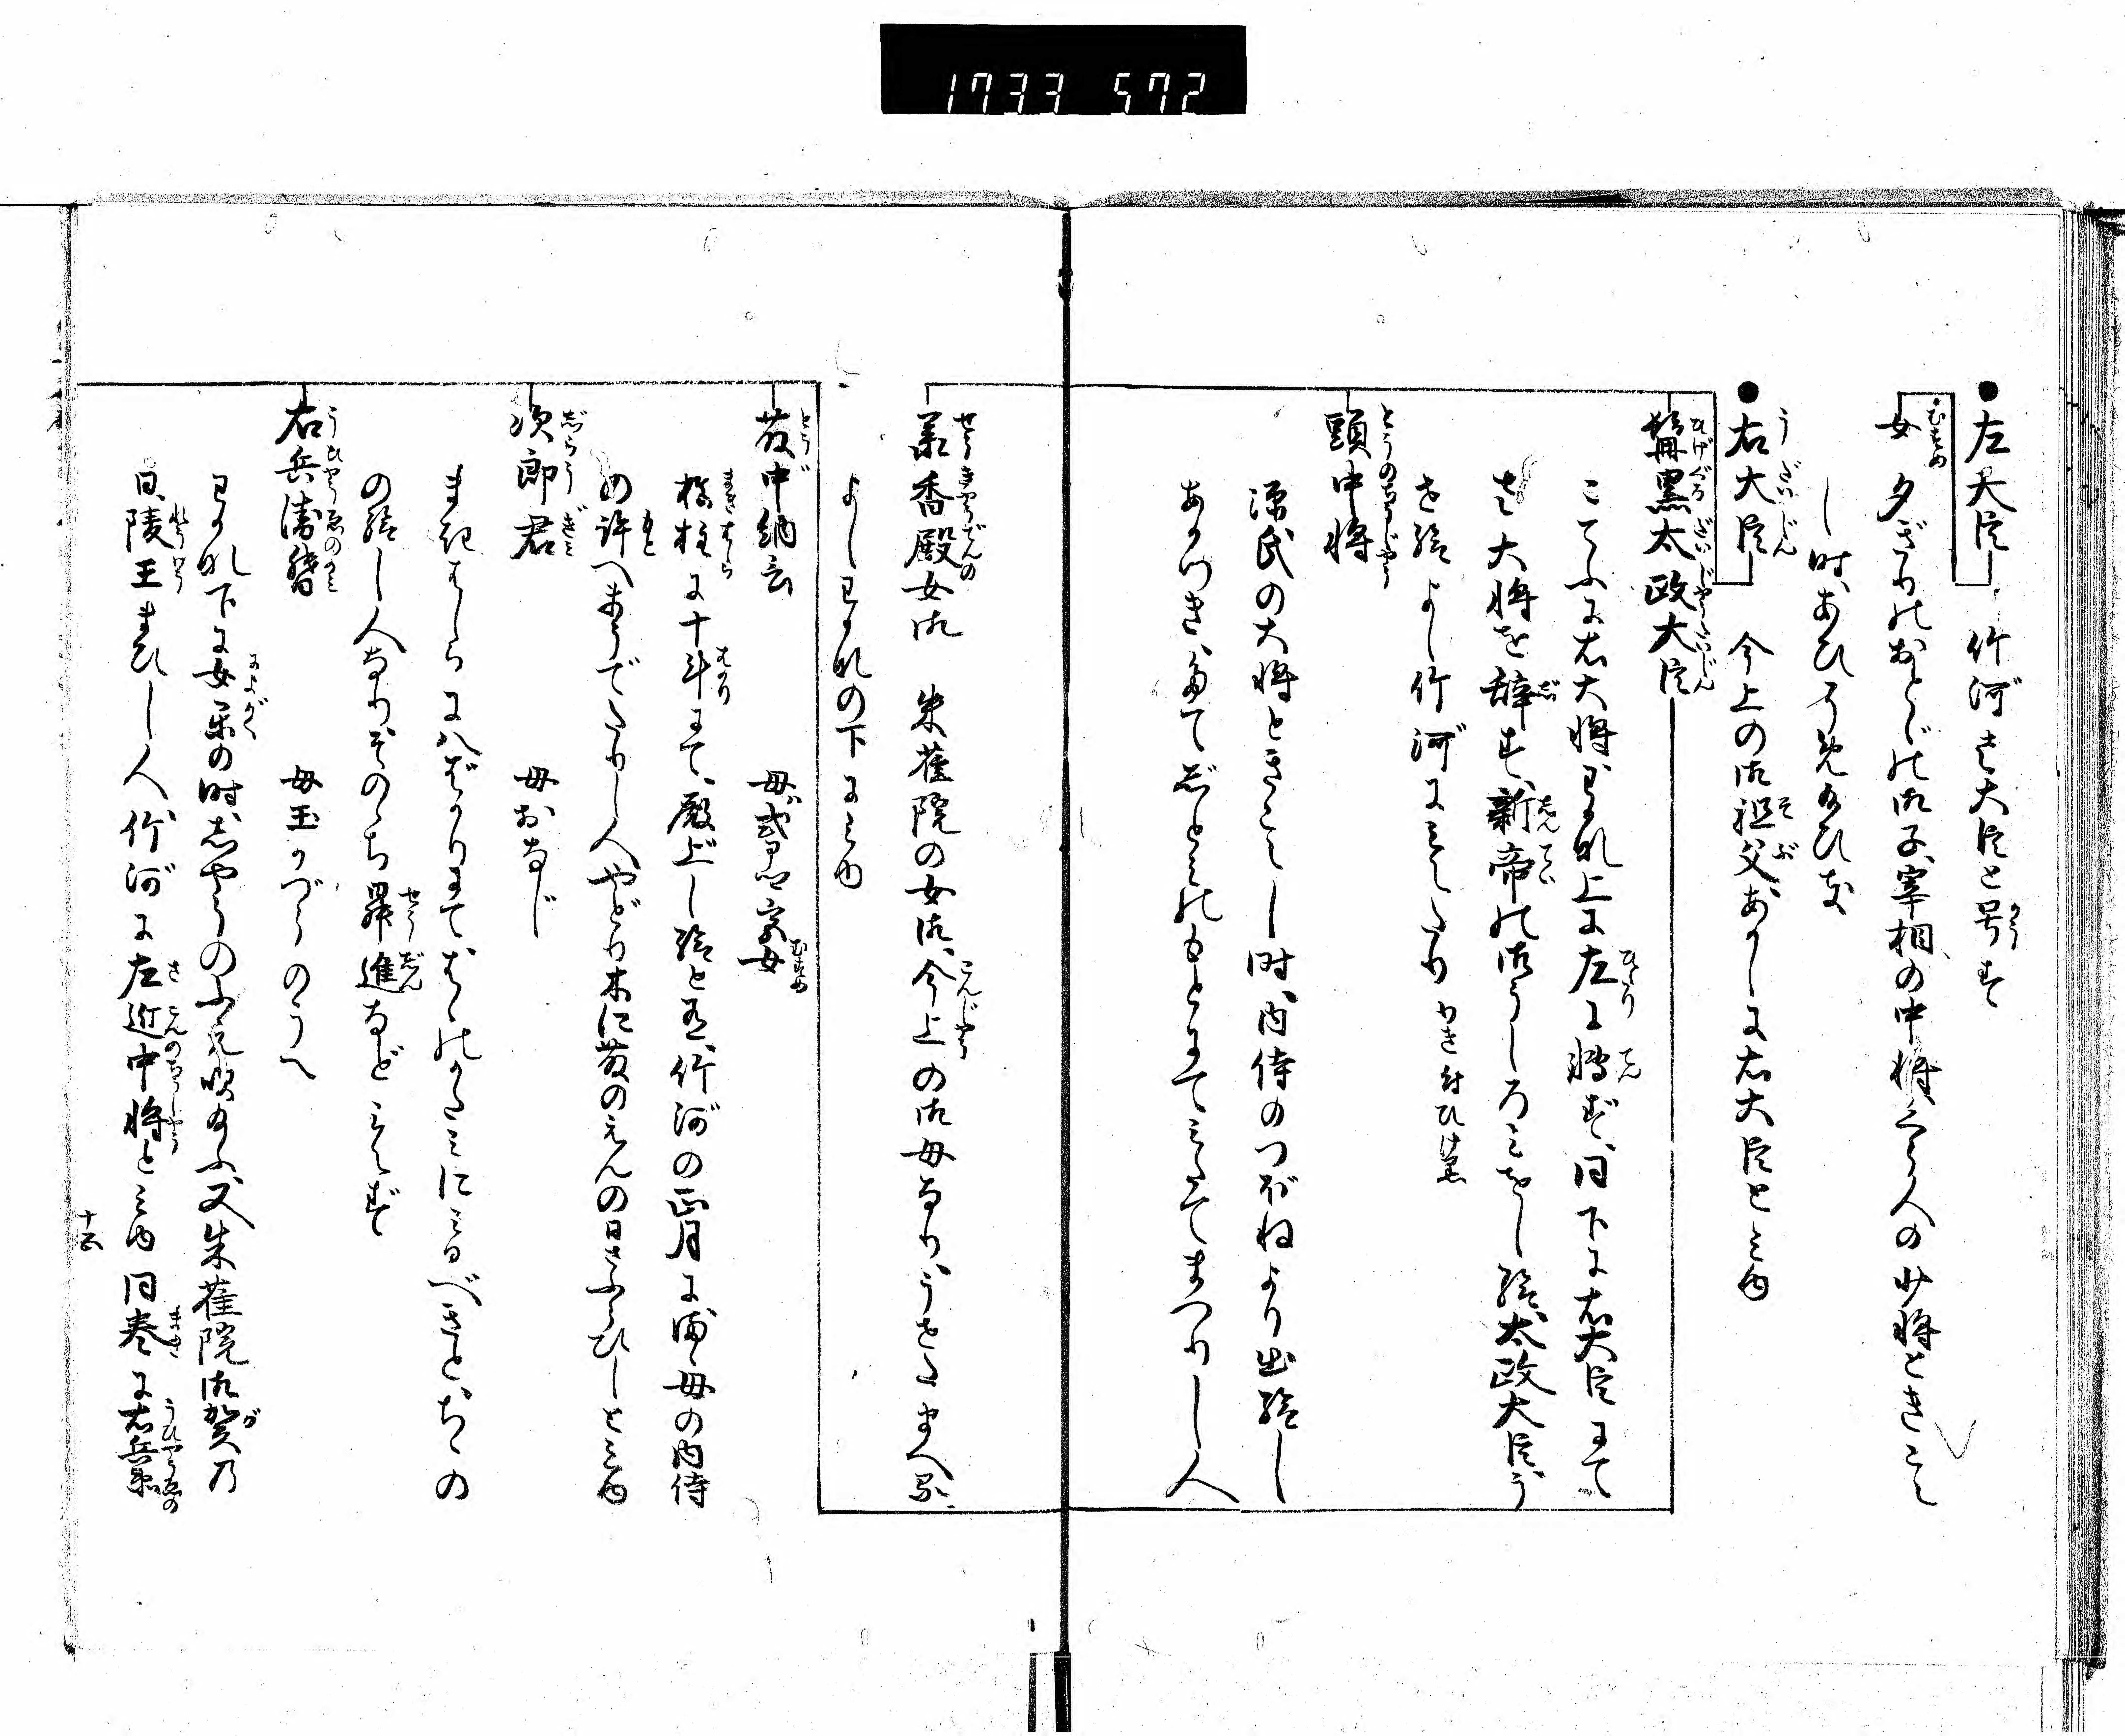 1733 572
●左大臣 竹河に左大臣と号す
女 夕ぎりのおとゞの御子宰相の中将三らう人の少将ときこえ
し時、あひそめ給ひぬ
●右大臣 今上の御祖父、あかしに右大臣とみゆ
鬚黒太政大臣
こてふに右大将、わかな上に左に転ず、同下に右大臣にて
左大将を辞す、新帝の御うしろみをし給、太政大臣、う
せ給よし竹河にみえたり
頭中将
源氏の大将ときこえし時、内侍のつぼねより出給し
あかつき、たてじとみのもとにてみたてまつりし人
承香殿女御 朱雀院の女御、今上の御母なり、うせたまへる
よしわかなの下にみゆ
藤中納言 母式部卿宮女
槙柱に十斗にて、殿上し給と有、竹河の正月に継母の内侍
の許へまうでたりし人、やどり木に藤のえんの日さふらひしとみゆ
次郎君 母おなじ
まきばしらに八ばかりにて、はゝのかたみにみるべきと、ちゝの
の給し人なり、そのゝち昇進などみえず
右兵衛督 母玉かづらのうへ
わかな下に女楽の時、しやうのふえ吹給ふ、又朱雀院御賀の
日、陵王まひし人、竹河に左近中将とみゆ 同巻に右兵衛